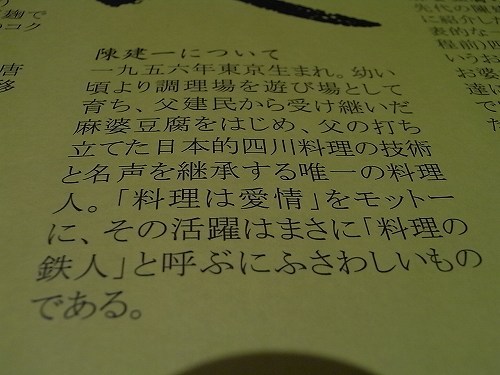 陳建一について
一九五六年東京生まれ。幼い
頃より調理場を遊び場として
育ち、父建民から受け継いだ
麻婆豆腐をはじめ、父の打ち
立てた日本的四川料理の技術
と名声を継承する唯一の料理
人。「料理は愛情」をモットー
に、その活躍はまさに「料理の
鉄人」と呼ぶにふさわしいもの
である。
麹で
のコク
唐
移
に紹介し
表的な
程前)四
いうお
お婆
達に
で
た